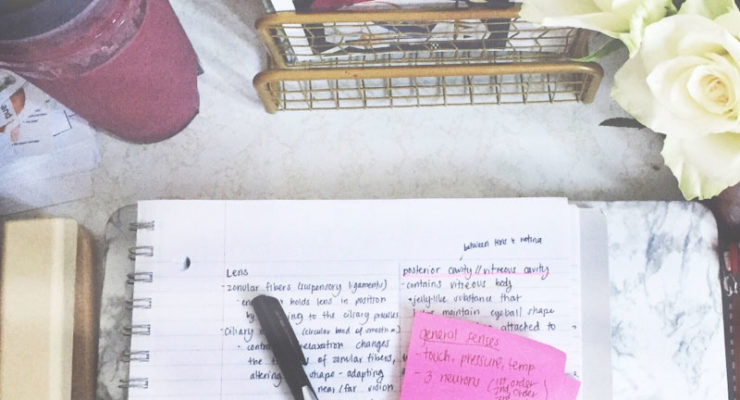 between lens & retina
Lens
- zonular fibers (suspensory ligaments)
holds lens in position
to the ciliary process
- Ciliary (circular band of smooth m)
- relaxation changes
the of zonular fibers,
altering shape - adapting
near/far vision
posterior cavity // vitreous cavity
- contains vitreous body
• jelly-like substance that
maintain eyeball shape
attached to
general senses
- touch, pressure, temp
- 3 neurons (1st order
2nd order